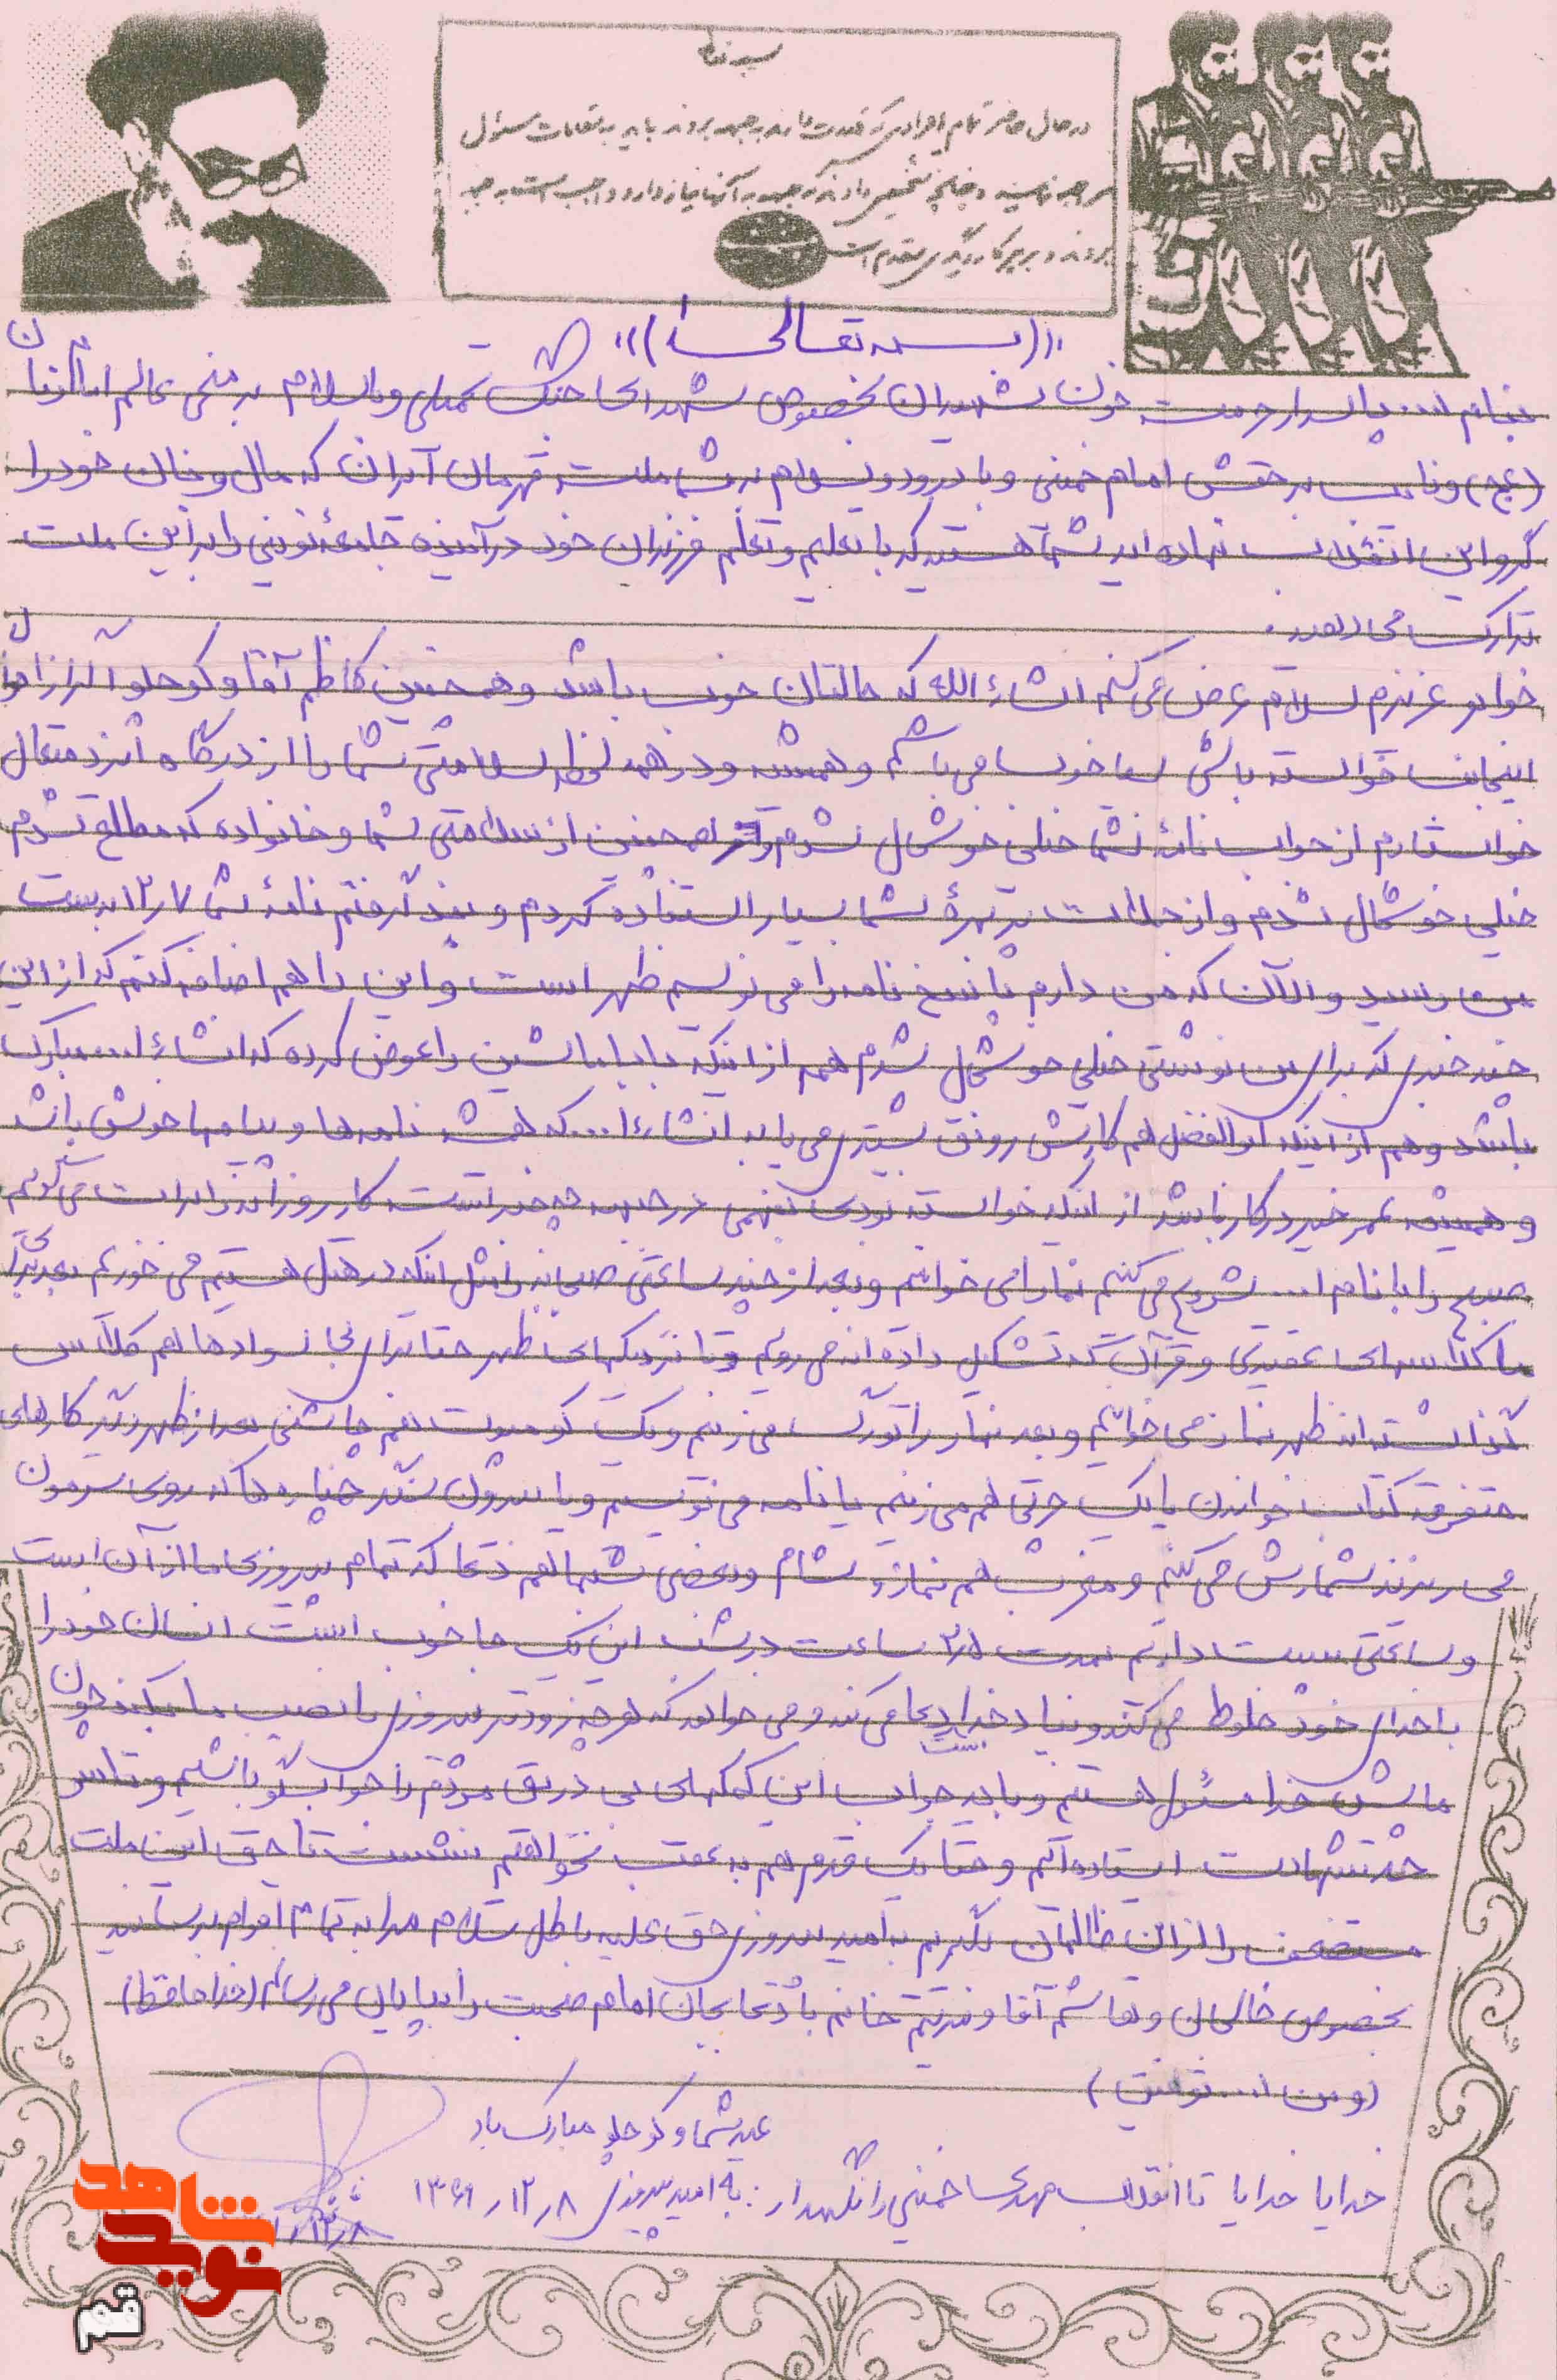 بسمه تعالی
در حال حاضر تمام افرادی که قدرت دارند به جبهه بروند باید به مقامات مسئول
مراجعه نمایند و چنانچه تشخیص دادند که جبهه به آنها نیاز دارد واجب است به جبهه
بروند و بر هر کار دیگری مقدم است
((بسمه تعالی))
بنام الله پاسدار حرمت خون شهیدان بخصوص شهدای جنگ تحمیلی و با سلام بر منجی عالم امام زمان
(عج) و نایب بر حقش امام خمینی و با درود و سلام بر شما ملت قهرمان ایران که مال و جان خود را
گرو این انقلاب نهاده اید شما هستید که با تعلیم و تعلم فرزندان خود در آینده جامعه نوینی را برای این ملت
تدارک می دهید.
خواهر عزیزم سلام عرض می کنم انشاء الله که حالتان خوب باشد و همچنین کاظم آقا و کوچلو اگر از احوال
اینجانب خواسته باشی خوب می باشم و همیشه و در همه لحظه سلامتی شما را از درگاه ایزد متعال
خواستارم از جواب نامه شما خیلی خوشحال شدم و همچنین از سلامتی شما و خانواده که مطلع شدم
خیلی خوشحال شدم و از جملات پر بهره شما بسیار استفاده کردم و پند گرفتم نامه شما ۱۲/۷ بدست
من رسید و الآن که من دارم پاسخ نامه را می نویسم ظهر است و این را هم اضافه کنم که از این
چند خبری که برای من نوشتی خیلی خوشحال شدم هم از اینکه بابا ماشین را عوض کرده که انشاء ا... مبارک
باشد و هم از اینکه ابوالفضل هم کارش رونق بیشتری می یابد انشاءا... که همیشه نامه ها و پیامها خوش باشد
و همیشه عمر خیر در کار باشد از اینکه خواسته بودی بفهمی در جبهه چه خبر است کار روزانه را برایت می گویم
صبح را با نام ا... شروع می کنم نماز می خوانیم و بعد از چند ساعتی صبحانه را مثل اینکه در هتل هستیم می خوریم بعد برای
ما کلاسهای عقیدتی و قرآن که تشکیل داده اند می رویم و تا نزدیکهای ظهر حتا برای بی سوادها هم کلاس
گذاشته اند ظهر نماز می خوانیم و بعد نهار را تو رگ می زنیم و یک کمپوت هم چاشنی بعد از ظهر نیز کارهای
متفرقه کتاب خواندن یا یک چرتی هم می زنیم یا نامه می نویسیم و یا بیرون سنگر خمپاره ها که روی سرمون
می ریزند شمارش می کنیم و مغرب هم نماز و شام و بعضی شبها هم دعا که تمام پیروزی ما از آن است
و ساعتی پست داریم بمدت ۲/۵ ساعت در شب این یک جا خوب است انسان خود را
با خدای خود خلوط می کند و بیاد خدا دعا می کند و می خواهد که هر چه زودتر پیروزی را نصیب ما بکند چون
ما پیش خدا مسئول هستیم و باید جواب این کمکهای بی دریق مردم را جوابگو باشیم و تا سر
حد شهادت ایستاده ایم و حتا یک قدم هم به عقب نخواهیم نشست تا حق این ملت
مستضعف را از این ظالمان بگیریم به امید پیروزی حق علیه باطل سلام مرا به تمام اقوام برسانید
بخصوص و هاشم آقا و خانم با دعا بجان امام صحبت را بپایان می رسانم (خدا حافظ)
(و من ا... توفیق)
عید شما و کوچلو مبارک باد
خدایا خدایا تا انقلاب مهدی خمینی را نگهدار : به امید پیروزی ۱۳۶۱/۱۲/۸
۱۲/۸
نوید شاهد
قم